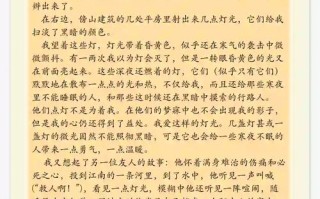 辨出来了。
在右边，傍山建筑的几处平房里射出来几点灯光，它们给我
扫淡了黑暗的颜色。
我望着这些灯，灯光带着昏黄色，似乎还在寒气的袭击中微
微颤抖。有一两次我以为灯会灭了，但是一转眼昏黄色的光又
在前面亮起来。这些深夜还燃着的灯，它们（似乎只有它们）
默默地在散布一点点的光和热，不仅给我，而且还给那些寒夜
里不能睡眠的人，和那些这时候还在黑暗中摸索的行路人。
他们点灯不是为我，在他们的梦寐中也不会出现我的影子，
但是我的心仍然得到了益处。我爱这样的灯光。几盏灯甚或一
盏灯的微光固然不能照彻黑暗，可是它也会给一些寒夜不眠的
人带来一点勇气，一点温暖。
我又想起了另一位友人的故事：他怀着满身难治的伤痛和必
死之心，投到江南的一条河里，到了水中，他听见一声叫喊
（“救人啊！”），看见一点灯光，模糊中他还听见一阵喧闹，随